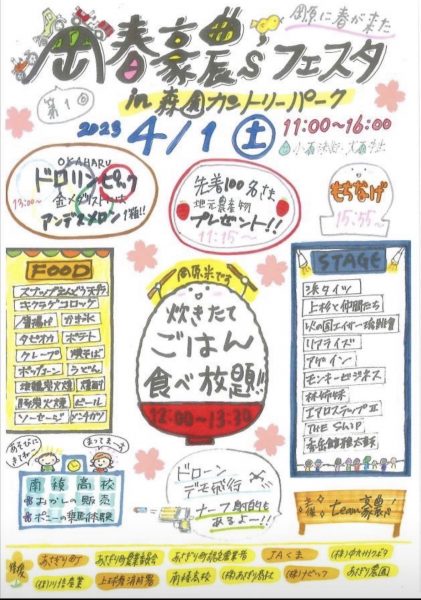 岡原に春が来た
岡春豪農'sフェスタ
第1回
in 森園カントリーパーク
2023 4/1 土 11:00~16:00
OKAHARU
ドロリンピック
13:00~
金メダリストには
アンデスメロン1箱!!
先着100名さま
地元農産物
プレゼント!!
11:15~
もちなげ
15:55~
FOOD
スナップえんどう天ぷら
キクラゲコロッケ
唐揚げ
かき氷
タピオカ
ポテト
クレープ
焼そば
ポップコーン
うどん
地鶏炭火焼
豚肉炭火焼
ビール
ソーセージ
岡原米です
炊きたて
ごはん
食べ放題!!
12:00~13:30
STAGE
浜タイツ
上杉と仲間たち
火の国エイサー琉舞會
リアライズ
アゲイン
モンキービジネス
林姉妹
エアロステップⅡ
THE SHIP
あそびにきてね~
まってま~す
南稜高校
おかしの販売
ポニーの乗馬体験
ドローン
デモ飛行
ナーフ射的も
あるよー!!
主催 team豪農!!
後援
あさぎり町
あさぎり町農業委員会
あさぎり町認定農業者
JAくま
上球磨消防署
南稜高校
あさぎり農園